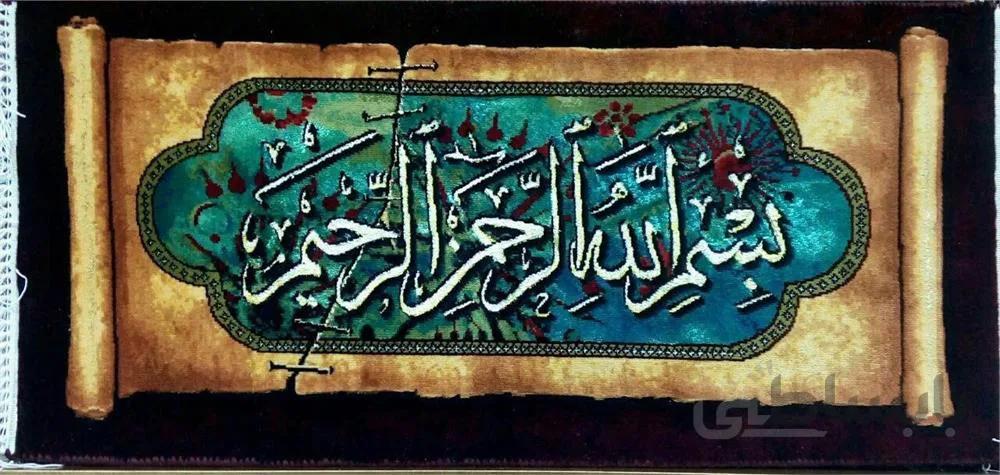 بِسْمِ اللَّهِ الرَّحْمَٰنِ الرَّحِيمِ
باسلطی